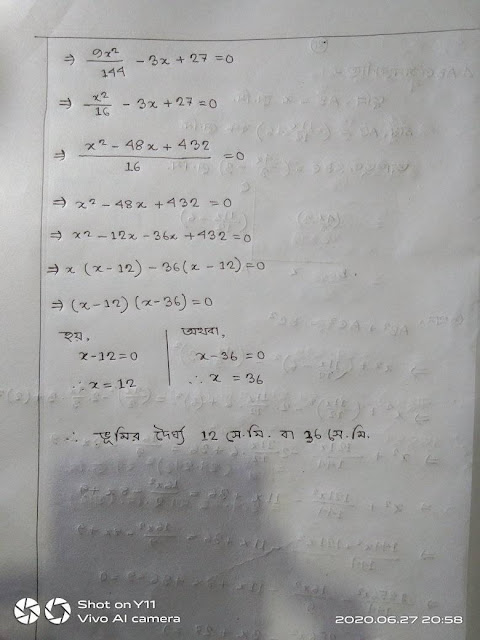 ⇒ 9x²/144 - 3x + 27 = 0
⇒ x²/16 - 3x + 27 = 0
⇒ (x² - 48x + 432)/16 = 0
⇒ x² - 48x + 432 = 0
⇒ x² - 12x - 36x + 432 = 0
⇒ x (x - 12) - 36 (x - 12) = 0
⇒ (x - 12) (x - 36) = 0
হয়, | অথবা,
x - 12 = 0 | x - 36 = 0
∴ x = 12 | ∴ x = 36
∴ ভূমির দৈর্ঘ্য 12 সে.মি. বা 36 সে.মি.
Shot on Y11
Vivo AI camera
2020.06.27 20:58